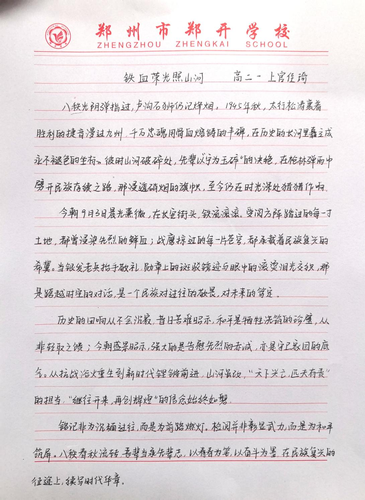 郑州市郑开学校
ZHENGZHOU ZHENGKAI SCHOOL
铁血荣光照山河 高二一 上官佳琦
八秩光阴弹指过，卢沟石狮仍记烽烟。1945年秋，太行松涛裹着
胜利的捷音漫过九州，千万忠魂用骨血熔铸的丰碑，在历史的长河里矗立成
永不褪色的坐标。彼时山河破碎处，先辈以"宁为玉碎"的决绝，在枪林弹雨中
劈开民族存续之路，那浸透硝烟的旗帜，至今仍在时光深处猎猎作响。
今朝9月3日晨光熹微，在长安街头，铁流滚滚，受阅方阵踏过的每一寸
土地，都曾浸染先烈的鲜血；战鹰掠过的每一片苍穹，都承载着民族复兴的
希冀。当银发老兵抬手敬礼，勋章上的斑驳锈迹与眼中的滚烫泪光交织，那
是跨越时空的对话，是一个民族对过往的敬畏，对未来的笃定。
历史的回响从不沉寂，昔日苦难昭示，和平是牺牲浇筑的珍宝，从
非轻取之物；今朝盛景昭示，强大的是告慰先烈的赤诚，亦是守己家园的底
气。从抗战浴火重生到新时代铿锵前进，山河虽改，"天下兴亡，匹夫有责"
的担当，"继往开来，再创辉煌"的信念始终如磐。
铭记非为沉湎过往，而是为前路燃灯。检阅并非彰显武力，而是为和平
筑盾。八秩春秋流转，吾辈当承先辈志，以青春为笔，以奋斗为墨，在民族复兴的
征途上，续写时代华章。